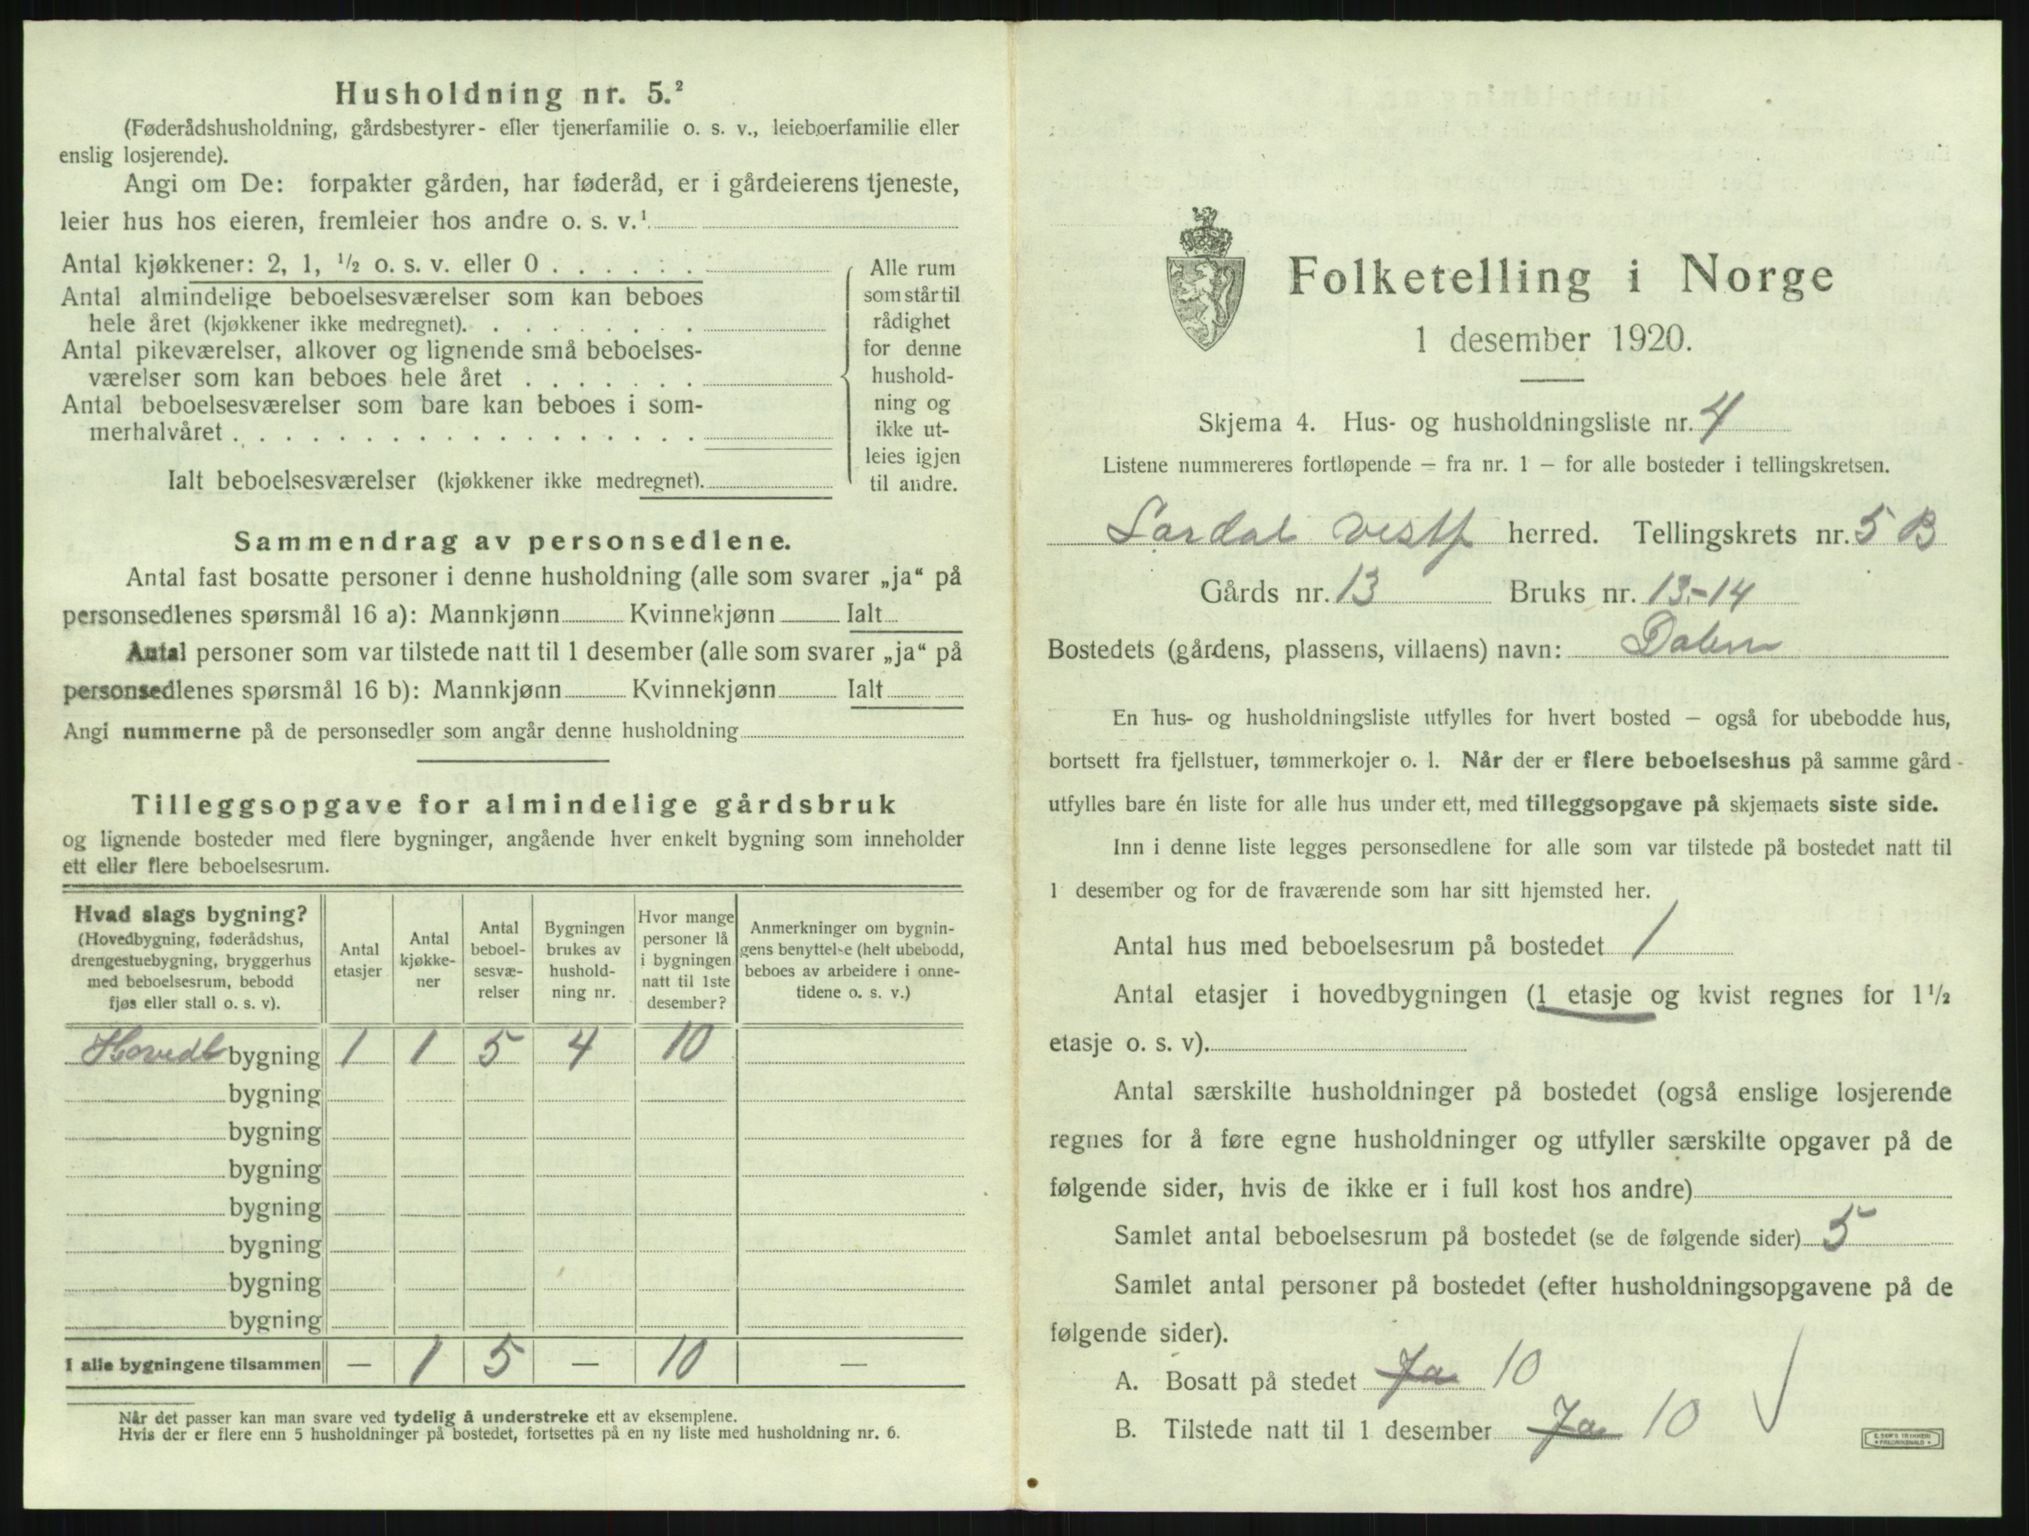 Husholdning nr. 5.²
(Føderådshusholdning, gårdsbestyrer- eller tjenerfamilie o. s. v., leieboerfamilie eller
enslig losjerende).
Angi om De: forpakter gården, har føderåd, er i gårdeierens tjeneste,
leier hus hos eieren, fremleier hos andre o. s. v.¹
Antal kjøkkener: 2, 1, ½ o. s. v. eller 0 . . . . . .
Antal almindelige beboelsesværelser som kan beboes
hele året (kjøkkener ikke medregnet). . . . . . . . .
Antal pikeværelser, alkover og lignende små beboelses-
værelser som kan beboes hele året . . . . . . .
Antal beboelsesværelser som bare kan beboes i som-
merhalvåret . . . . . . . . . . . . . . . . . .
Ialt beboelsesværelser (kjøkkener ikke medregnet).
Alle rum
som står til
rådighet
for denne
hushold-
ning og
ikke ut-
leies igjen
til andre.
Sammendrag av personsedlene.
Antal fast bosatte personer i denne husholdning (alle som svarer „ja“ på
personsedlenes spørsmål 16 a): Mannkjønn Kvinnekjønn Ialt
Antal personer som var tilstede natt til 1 desember (alle som svarer „ja“ på
personsedlenes spørsmål 16 b): Mannkjønn Kvinnekjønn Ialt
Angi nummerne på de personsedler som angår denne husholdning
Tilleggsopgave for almindelige gårdsbruk
og lignende bosteder med flere bygninger, angående hver enkelt bygning som inneholder
ett eller flere beboelsesrum.
Hvad slags bygning?
(Hovedbygning, føderådshus,
drengestuebygning, bryggerhus
med beboelsesrum, bebodd
fjøs eller stall o. s. v).
Antal
etasjer
Antal
kjøkke-
ner
Antal
beboel-
sesvæ-
relser
Bygningen
brukes av
hushold-
ning nr.
Hvor mange
personer lå
i bygningen
natt til 1ste
desember?
Anmerkninger om bygnin-
gens benyttelse (helt ubebodd,
beboes av arbeidere i onne-
tidene o. s. v.)
Hovedb bygning 1 1 5 4 10
bygning
bygning
bygning
bygning
bygning
bygning
bygning
I alle bygningene tilsammen — 1 5 — 10 —
Når det passer kan man svare ved tydelig å understreke ett av eksemplene.
Hvis der er flere enn 5 husholdninger på bostedet, fortsettes på en ny liste med husholdning nr. 6.
Folketelling i Norge
1 desember 1920.
Skjema 4. Hus- og husholdningsliste nr. 4
Listene nummereres fortløpende — fra nr. 1 — for alle bosteder i tellingskretsen.
Lardal Vestf herred. Tellingskrets nr. 5 B
Gårds nr. 13 Bruks nr. 13-14
Bostedets (gårdens, plassens, villaens) navn: Dalen
En hus- og husholdningsliste utfylles for hvert bosted — også for ubebodde hus,
bortsett fra fjellstuer, tømmerkojer o. l. Når der er flere beboelseshus på samme gård
utfylles bare én liste for alle hus under ett, med tilleggsopgave på skjemaets siste side.
Inn i denne liste legges personsedlene for alle som var tilstede på bostedet natt til
1 desember og for de fraværende som har sitt hjemsted her.
Antal hus med beboelsesrum på bostedet 1
Antal etasjer i hovedbygningen (1 etasje og kvist regnes for 1½
etasje o. s. v).
Antal særskilte husholdninger på bostedet (også enslige losjerende
regnes for å føre egne husholdninger og utfyller særskilte opgaver på de
følgende sider, hvis de ikke er i full kost hos andre)
Samlet antal beboelsesrum på bostedet (se de følgende sider) 5
Samlet antal personer på bostedet (efter husholdningsopgavene på de
følgende sider).
A. Bosatt på stedet Ja 10
B. Tilstede natt til 1 desember Ja 10